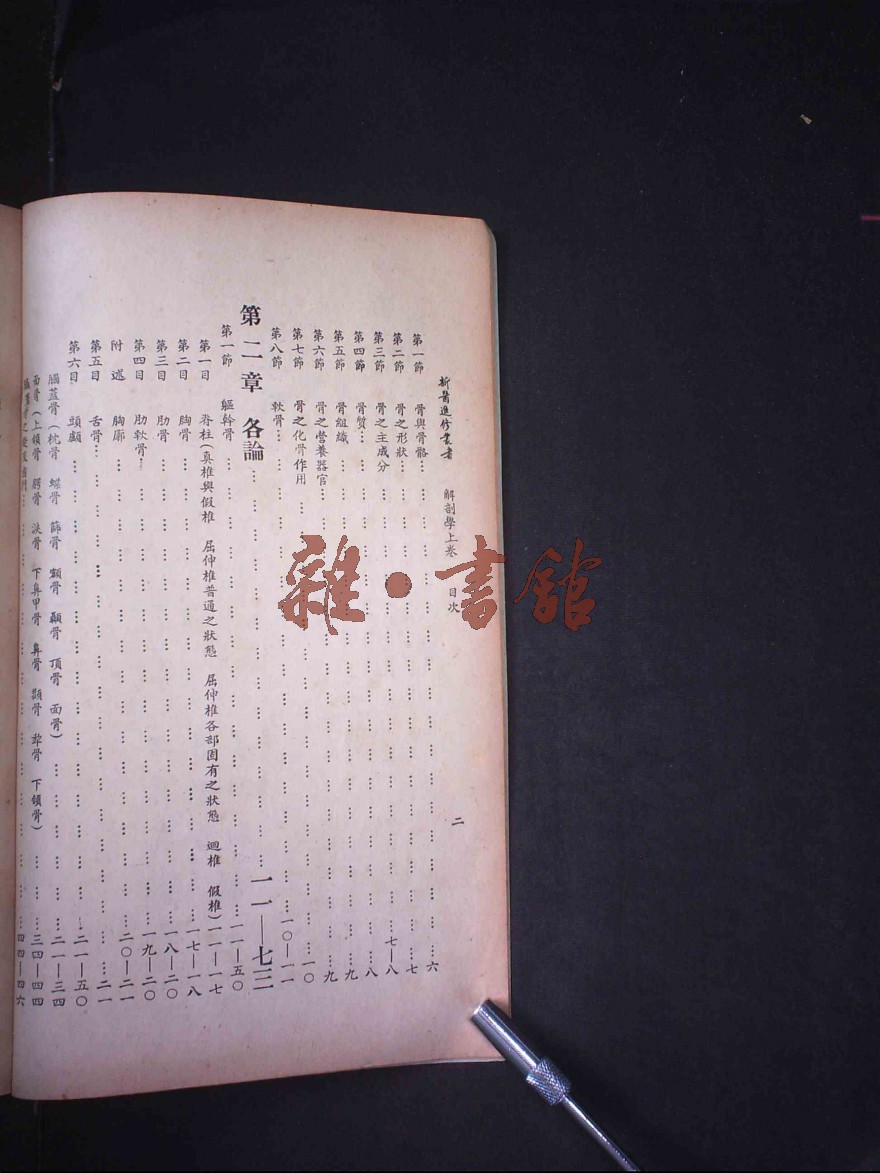 新醫進修叢書 解剖學上卷 目次 二
第一節 骨與骨骼 六
第二節 骨之形狀 七
第三節 骨之主成分 七—八
第四節 骨質 八
第五節 骨組織 九
第六節 骨之營養器官 九
第七節 骨之化骨作用 一〇
第八節 軟骨 一〇—一一
第二章 各論 一一—七三
第一節 軀幹骨 一一—五〇
第一目 脊柱(真椎與假椎 屈伸椎普通之狀態 屈伸椎各部固有之狀態 迴椎 假椎) 一一—一七
第二目 胸骨 一七—一八
第三目 肋骨 一八—二〇
第四目 肋軟骨 一九—二〇
附述 胸廓 二〇—二一
第五目 舌骨 二一
第六目 頭顱 二一—五〇
腦蓋骨(枕骨 蝶骨 篩骨 顳骨 顱骨 頂骨 面骨) 二一—三四
面骨(上頜骨 腭骨 淚骨 下鼻甲骨 鼻骨 顴骨 犂骨 下頜骨) 三四—四四
四四—四六
雜·書館